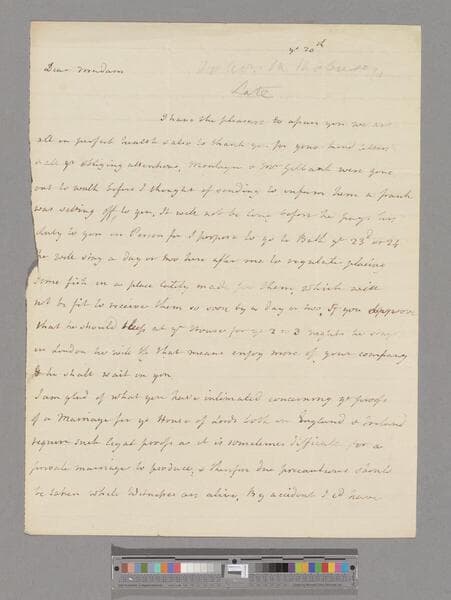 yᵉ 20ᵗʰ
Dear Madam
Late
I have the pleasure to assure you we are
all in perfect health & also to thank you for your kind letters
& all yʳ obliging attentions, Montagu & Mr Gilbank were gone
out to walk before I thought of sending to inform them a frank
was setting off to you, It will not be long before he pays his
duty to you in Person for I propose to go to Bath yᵉ 23ᵈ or 24
he will stay a day or two here after me to regulate placing
some fish in a place lately made for them, which will
not be fit to receive them so soon by a day or two, If you approve
that he should sleep at yʳ House for yᵉ 2 or 3 nights he stays
in London he will by that means enjoy more of your company
he shall wait on you
I am glad of what you have intimated concerning yᵉ proofs
of a Marriage for yᵉ House of Lords both in England & Ireland
require such legal proofs as it is sometimes difficult for a
private marriage to produce, & therefore due precautions should
be taken while Witnesses are alive, By accident I cd have